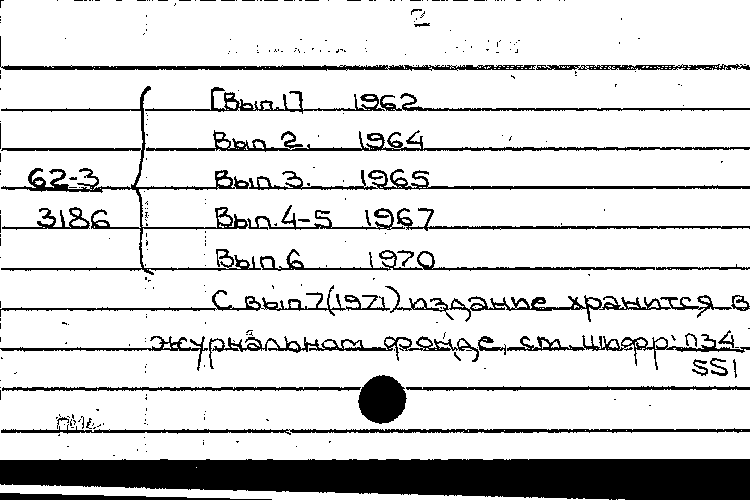 2
[Вып.1] 1962
Вып.2. 1964
62-3 Вып.3. 1965
3186 Вып.4-5 1967
Вып.6 1970
С вып.7(1971) издание хранится в
журнальном фонде, см. шифр: П34
551